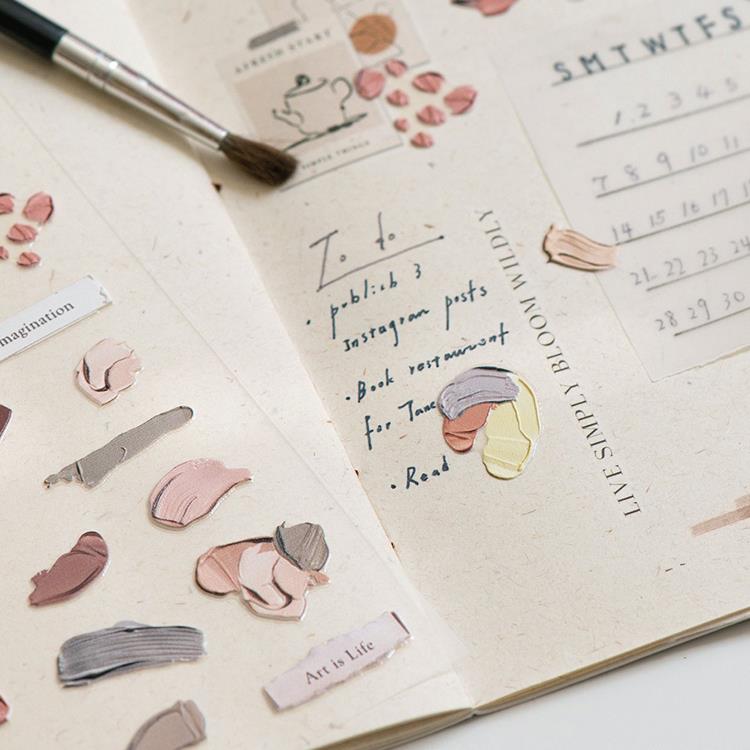 AFRESH START
SIMPLE THINGS
S M T W T F S
1 2 3 4 5
7 8 9 10 11
14 15 16 17
21 22 23 24
28 29 30
To do
• publish 3
Instagram posts
• Book restaurant
for Jane
• Read
LIVE SIMPLY BLOOM WILDLY
magination
Art is Life